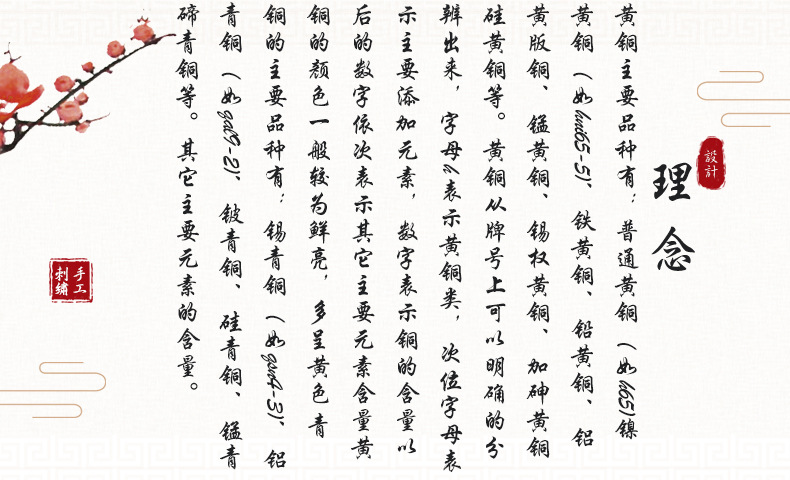 設計
理念
黄铜主要品种有：普通黄铜(如h65)镍
黄铜(如hni65-5)、铁黄铜、铅黄铜、铝
黄版铜、锰黄铜、锡权黄铜、加砷黄铜
硅黄铜等。黄铜从牌号上可以明确的分
辨出来，字母h表示黄铜类，次位字母表
示主要添加元素，数字表示铜的含量以
后的数字依次表示其它主要元素含量黄
铜的颜色一般较为鲜亮，多呈黄色青
铜的主要品种有：锡青铜(如qsn4-3)、铝
青铜(如qal9-2)、铍青铜、硅青铜、锰青
碲青铜等。其它主要元素的含量。
手工
刺繡